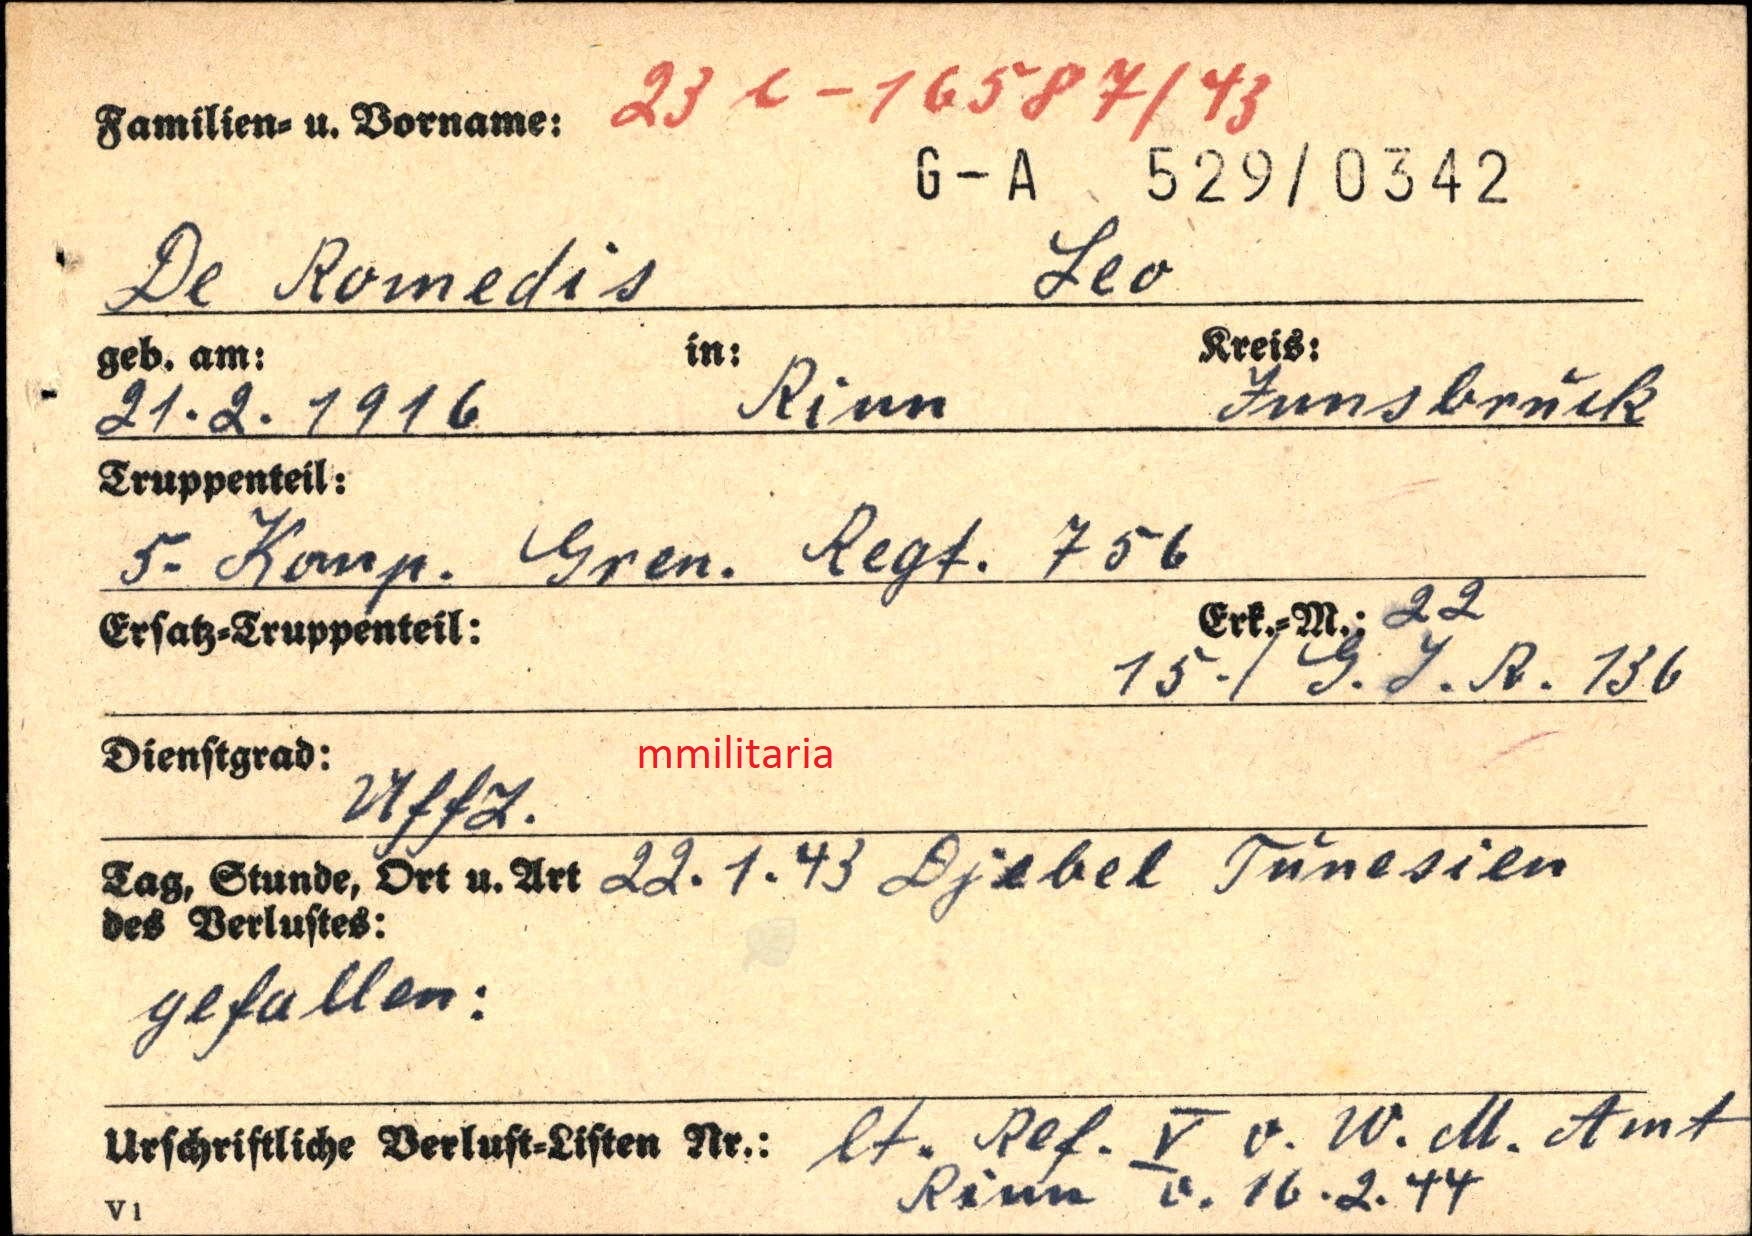 Familien- u. Vorname: 23 c - 16587/43
G-A 529/0342
De Romedis Leo
geb. am: in: Kreis:
21.2.1916 Rinn Innsbruck
Truppenteil:
5. Komp. Gren. Regt. 756
Ersatz-Truppenteil: Erk.-M.: 22
15./ G.J.R. 136
Dienstgrad: mmilitaria
Uffz.
Tag, Stunde, Ort u. Art 22.1.43 Djebel Tunesien
des Verlustes:
gefallen:
Urschriftliche Verlust-Listen Nr.: lt. Ref. V v. W. M. Amt
Rinn v. 16.2.44
V1